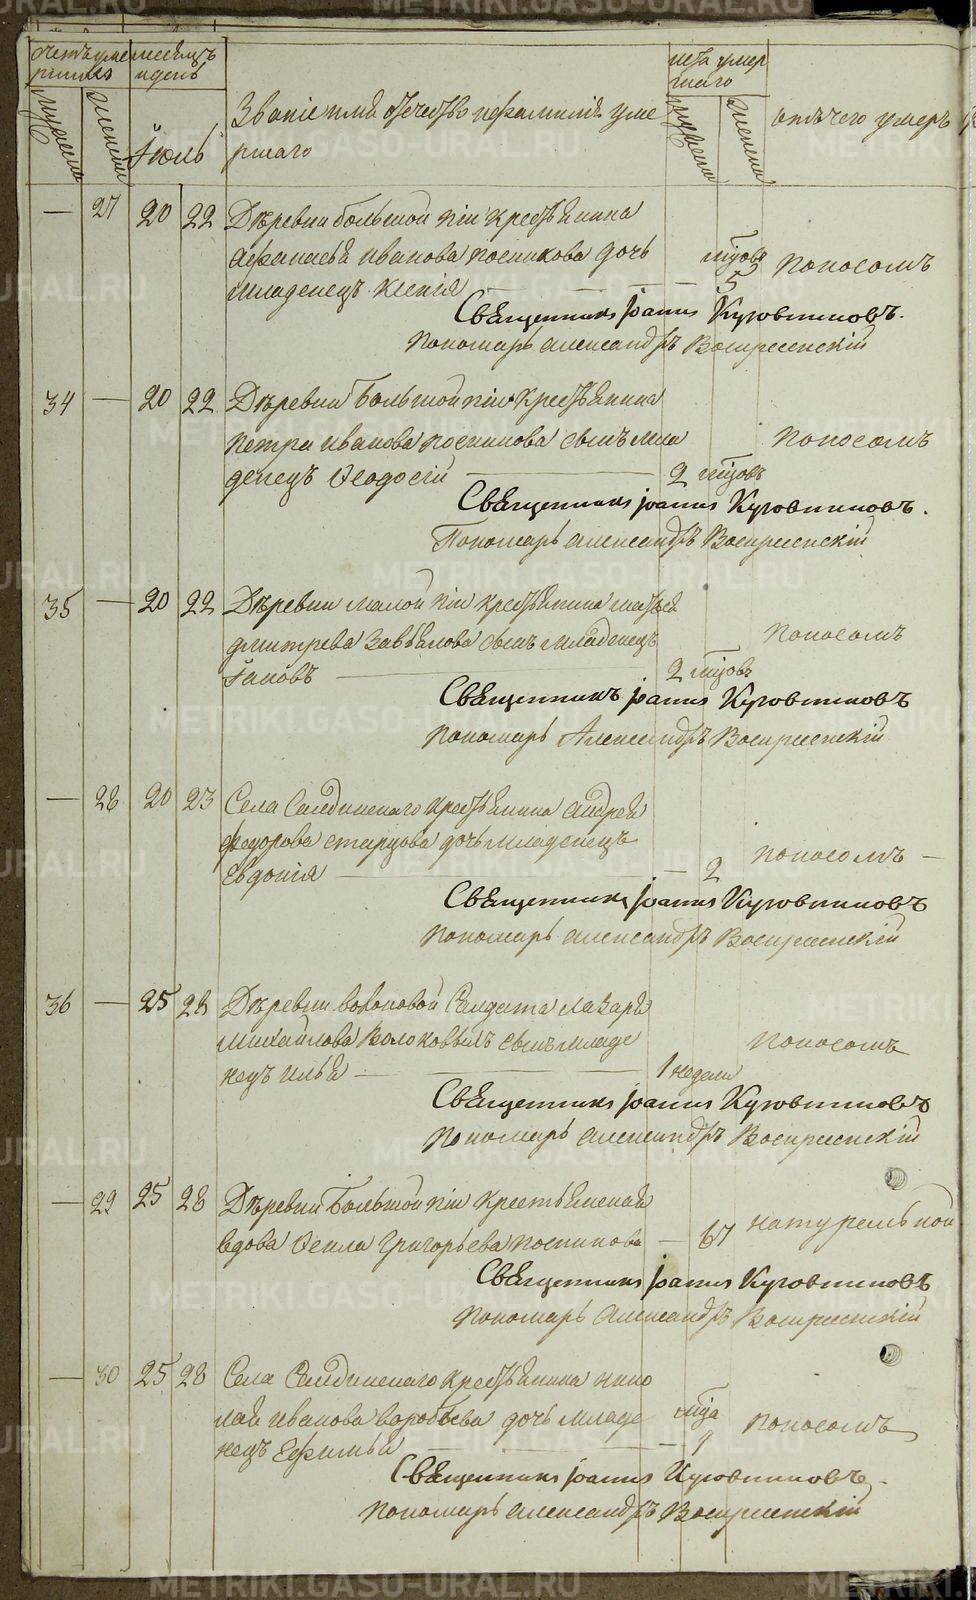 счетъ умершихъ
месяцъ и день
лета умершаго
мужеска
женска
Іюль
Званіе имя отечество и фамилія умершаго
мужеска
женска
отъ чего умеръ
— 27 20 22 Деревни Большой Піи крестьянина
Афанасья Иванова Посникова дочь мѣсяцовъ 5 Поносомъ
младенецъ Ксенія
Священникъ Іоаннъ Куровтиновъ.
Пономарь Александръ Воскресенскій
34 — 20 22 Деревни Большой Піи крестьянина
Петра Иванова Посникова сынъ мла Поносомъ
денецъ Ѳеодосій — 2 мѣсяцовъ
Священникъ Іоаннъ Куровтиновъ.
Пономарь Александръ Воскресенскій
35 — 20 22 Деревни Малой Піи крестьянина Матвея
Дмитрева Завьялова сынъ младенецъ Поносомъ
Іаковъ — 2 мѣсяцовъ
Священникъ Іоаннъ Куровтиновъ
Пономарь Александръ Воскресенскій
— 28 20 23 Села Салдинскаго крестьянина Андрея
Федорова Старцова дочь младенецъ Поносомъ —
Евдокія — 2
Священникъ Іоаннъ Куровтиновъ
Пономарь Александръ Воскресенскій
36 — 25 28 Деревни Солдата Лазаря
Михайлова сынъ младе Поносомъ
нецъ Илья — 1 недели
Священникъ Іоаннъ Куровтиновъ
Пономарь Александръ Воскресенскій
— 29 25 28 Деревни Большой Піи крестьянская
вдова Григорьева Посникова — 67 натуральной
Священникъ Іоаннъ Куровтиновъ
Пономарь Александръ Воскресенскій
— 30 25 28 Села Салдинскаго крестьянина Нико
лая Иванова Воробьева дочь младе мѣсяца 1 Поносомъ
нецъ Ефимья
Священникъ Іоаннъ Куровтиновъ.
Пономарь Александръ Воскресенскій
METRIKI.GASO-URAL.RU